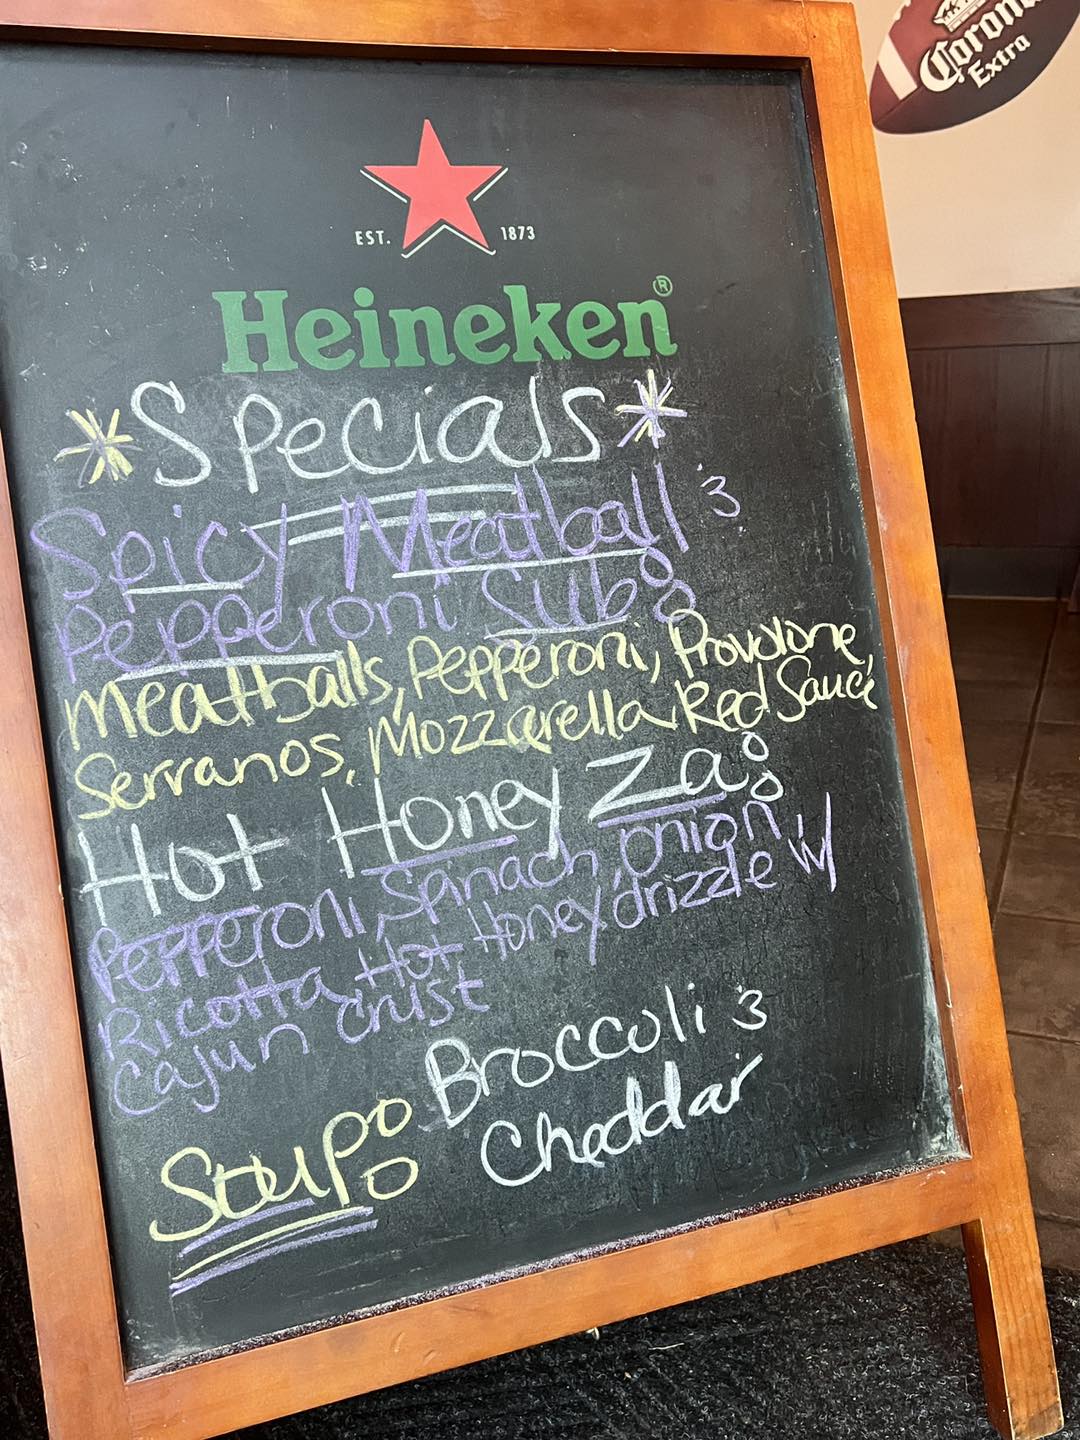 Corona
Extra
EST. 1873
Heineken®
*Specials*
Spicy Meatball &
Pepperoni Sub:
Meatballs, Pepperoni, Provolone,
Serranos, Mozzarella, Red Sauce
Hot Honey Za:
Pepperoni, Spinach, onion,
Ricotta, Hot Honey drizzle w/
Cajun Crust
Soup: Broccoli &
Cheddar